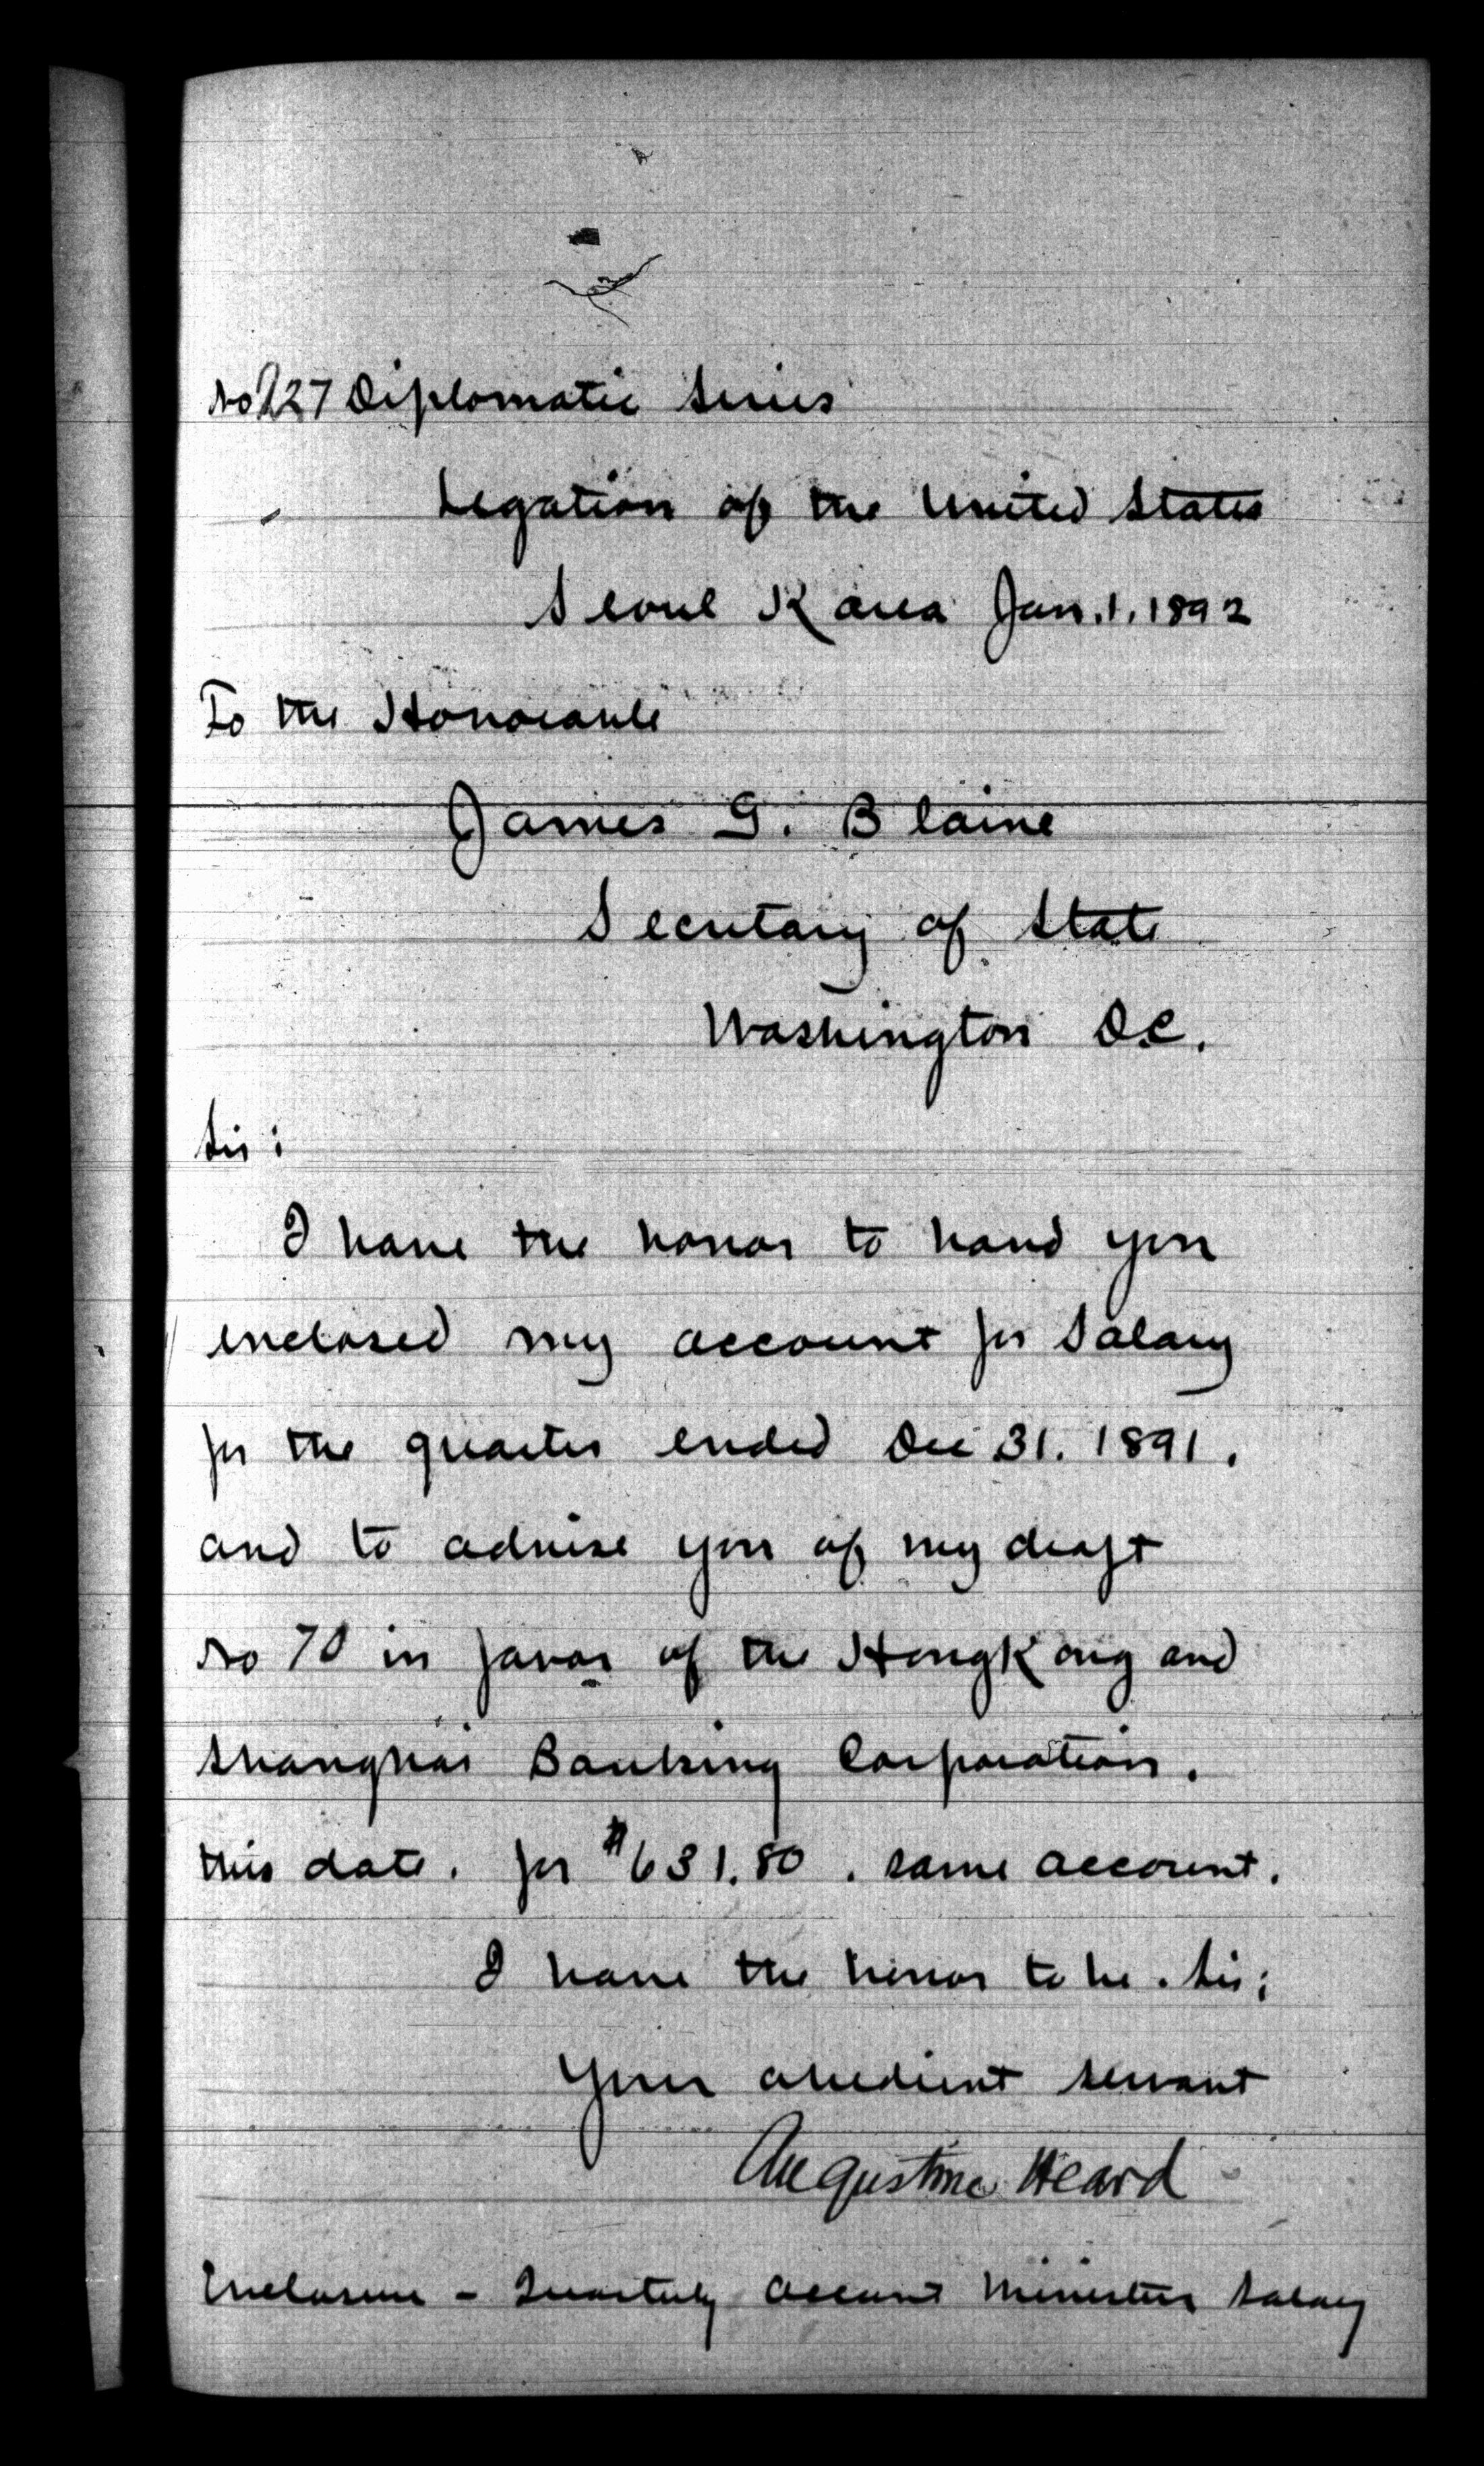 No 227 Diplomatic Series
Legation of the United States
Seoul Korea Jan. 1. 1892
To the Honorable
James G. Blaine
Secretary of State
Washington D.C.
Sir:
I have the honor to hand you
enclosed my account for Salary
for the quarter ended Dec 31. 1891.
and to advise you of my draft
No 70 in favor of the HongKong and
Shanghai Banking Corporation.
this date. for $631.80. same account.
I have the honor to be. Sir;
Your obedient servant
Augustine Heard
Enclosure - Quarterly Account Ministers Salary